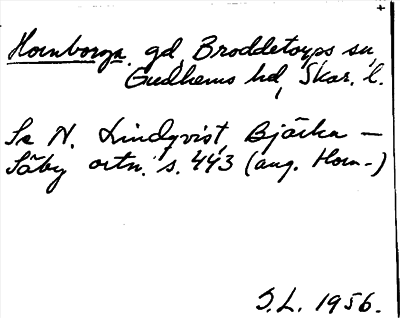 Hornborga. gd, Broddetorps sn,
Gudhems hd, Skar. l.
Se N. Lindqvist, Bjärka-
Säby ortn. s. 443 (ang. Horn-)
S.L. 1956.